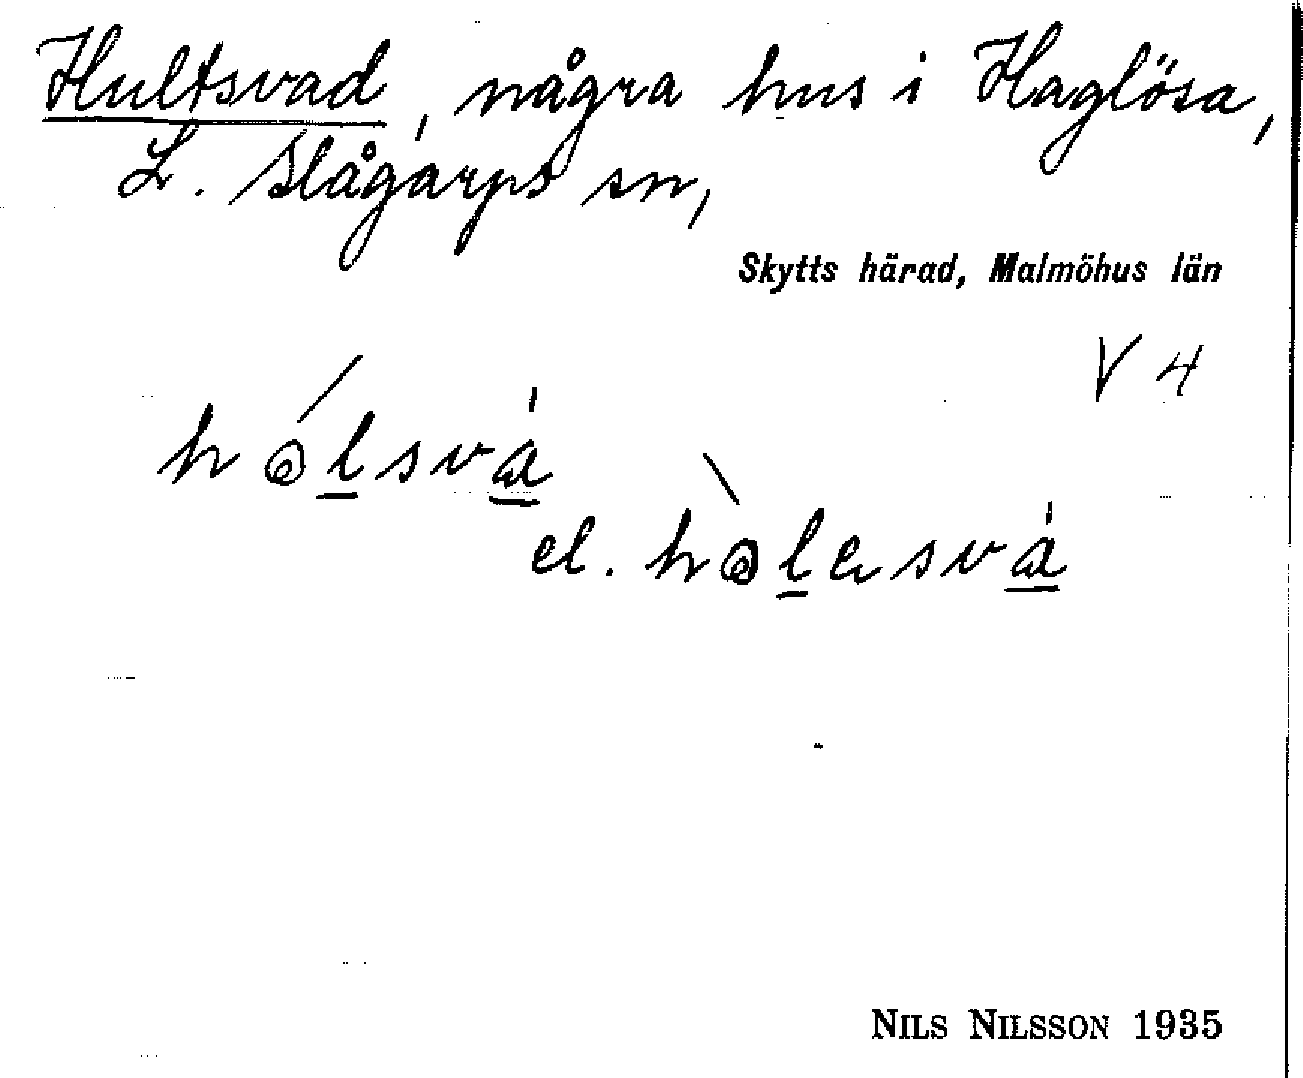 Hultsvad, några hus i Haglösa,
L. Slågarps sn,
Skytts härad, Malmöhus län
V 4
el.
NILS NILSSON 1935